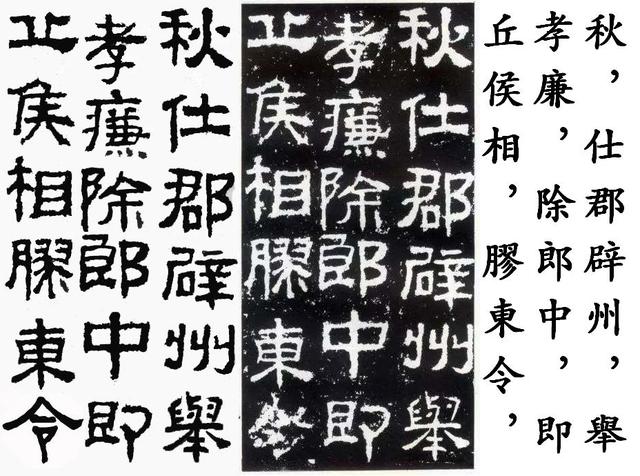 秋，仕郡辟州，舉
孝廉，除郎中，即
丘侯相，膠東令，
秋仕郡辟州舉
孝廉除郎中即
丘侯相膠東
秋仕郡辟州舉
孝廉除郎中即
丘侯相膠東令